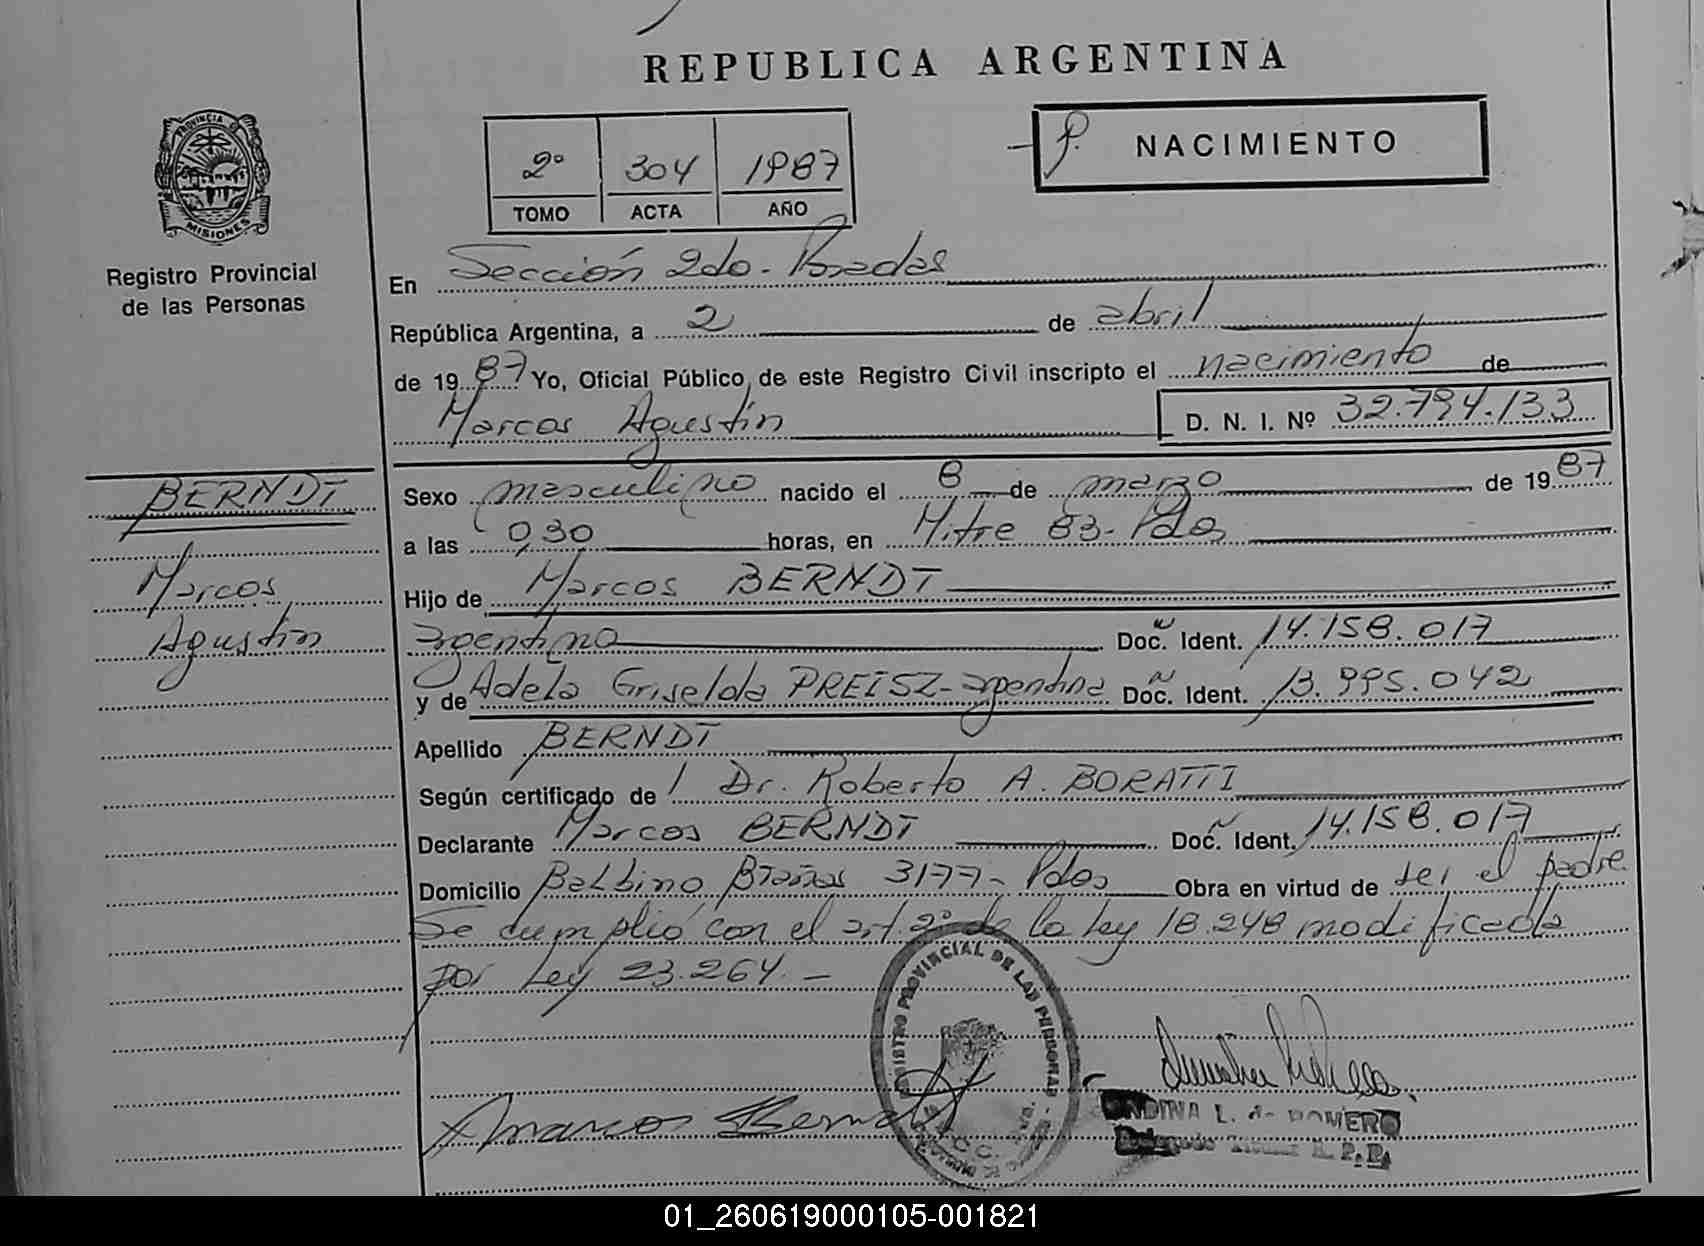 REPUBLICA ARGENTINA
2º 304 1987
TOMO ACTA AÑO
NACIMIENTO
PROVINCIA DE
MISIONES
Registro Provincial
de las Personas
En Sección 2do - Posadas
República Argentina, a 2 de abril
de 1987 Yo, Oficial Público de este Registro Civil inscripto el nacimiento de
Marcos Agustín D. N. I. Nº 32.794.133
BERNDT
Marcos
Agustín
Sexo masculino nacido el 8 de marzo de 1987
a las 0,30 horas, en Mitre 83 - Pdas
Hijo de Marcos BERNDT
argentino Doc. Ident. 14.158.017
y de Adela Griselda PREISZ - argentina Doc. Ident. 13.995.042
Apellido BERNDT
Según certificado de Dr. Roberto A. BORATTI
Declarante Marcos BERNDT Doc. Ident. 14.158.017
Domicilio Balbino Brañas 3177 - Pdas Obra en virtud de ser el padre
Se cumplió con el art. 2º de la ley 18.248 modificada
por Ley 23.264. -
REGISTRO PROVINCIAL DE LAS PERSONAS
Marcos Berndt
ONDINA L. de ROMERO
Delegado Titular R. P. P.
01_260619000105-001821